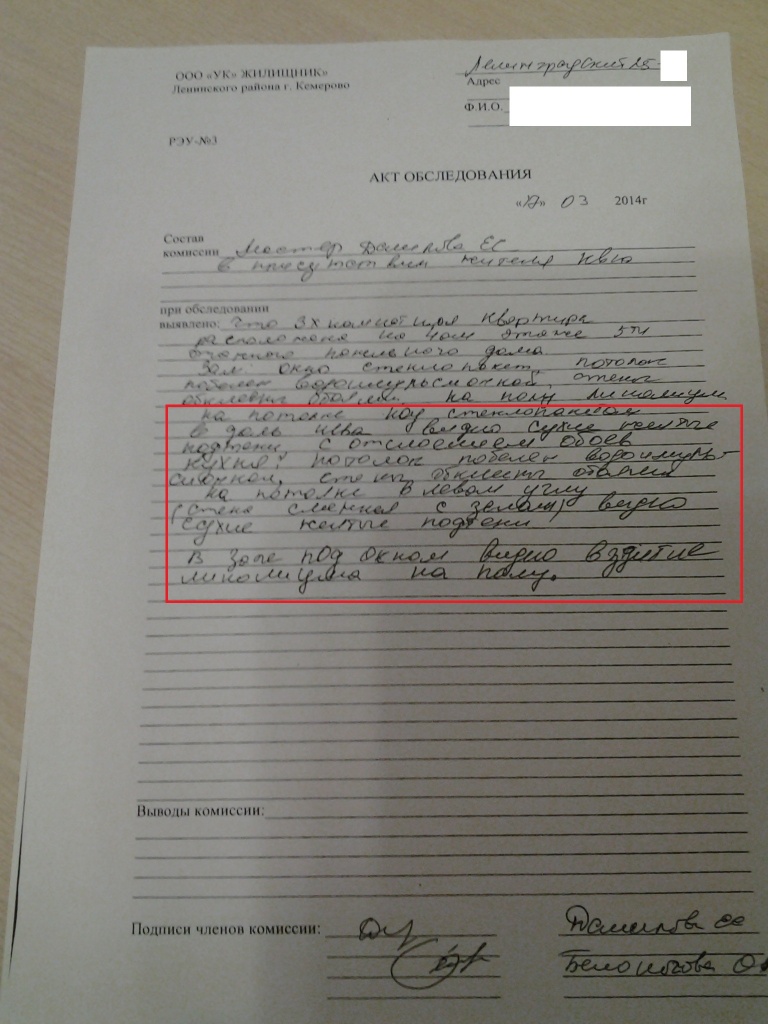 ООО «УК» ЖИЛИЩНИК»
Ленинского района г. Кемерово
Ленинградский 25-
Адрес
Ф.И.О.
РЭУ-№3
АКТ ОБСЛЕДОВАНИЯ
03 2014г
Состав
комиссии Мастер ЕС
в присутствии жителя
при обследовании
выявлено: что 3х комнатная квартира
расположена на 4ом этаже 5ти
этажного дома.
Зал: окно стеклопакет, потолок
побелен водоэмульсионкой, стены
обклеены обоями. на полу линолиум
на потолке над
в доль шва видно сухие желтые
подтеки с отслоением обоев
Кухня: потолок побелен водоэмуль-
сионкой, стены обклеены обоями
на потолке в левом углу
(стена смежная с залом) видно
сухие желтые подтеки
В зале под окном видно вздутие
линолиума на полу.
Выводы комиссии:
Подписи членов комиссии: